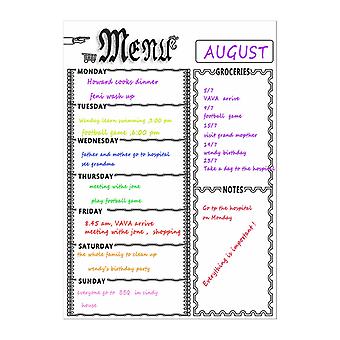 Menu
AUGUST
MONDAY
Howard cooks dinner
feni wash up
TUESDAY
Wendy learn swimming 3:00 pm
football game ,6:00 pm
WEDNESDAY
father and mother go to hospital
see grandma
THURSDAY
meeting withe jone
play football game
FRIDAY
8.45 am, VAVA arrive
meeting withe jone , shopping
SATURDAY
the whole family to clean up
wendy's birthday party
SUNDAY
everyone go to BBQ in cindy
house
GROCERIES
5/7
VAVA arrive
9/7
football game
15/7
visit grand mopther
19/7
wendy birthday
23/7
Take a day to the hospital
NOTES
Go to the hospital
on Monday
Everything is important !